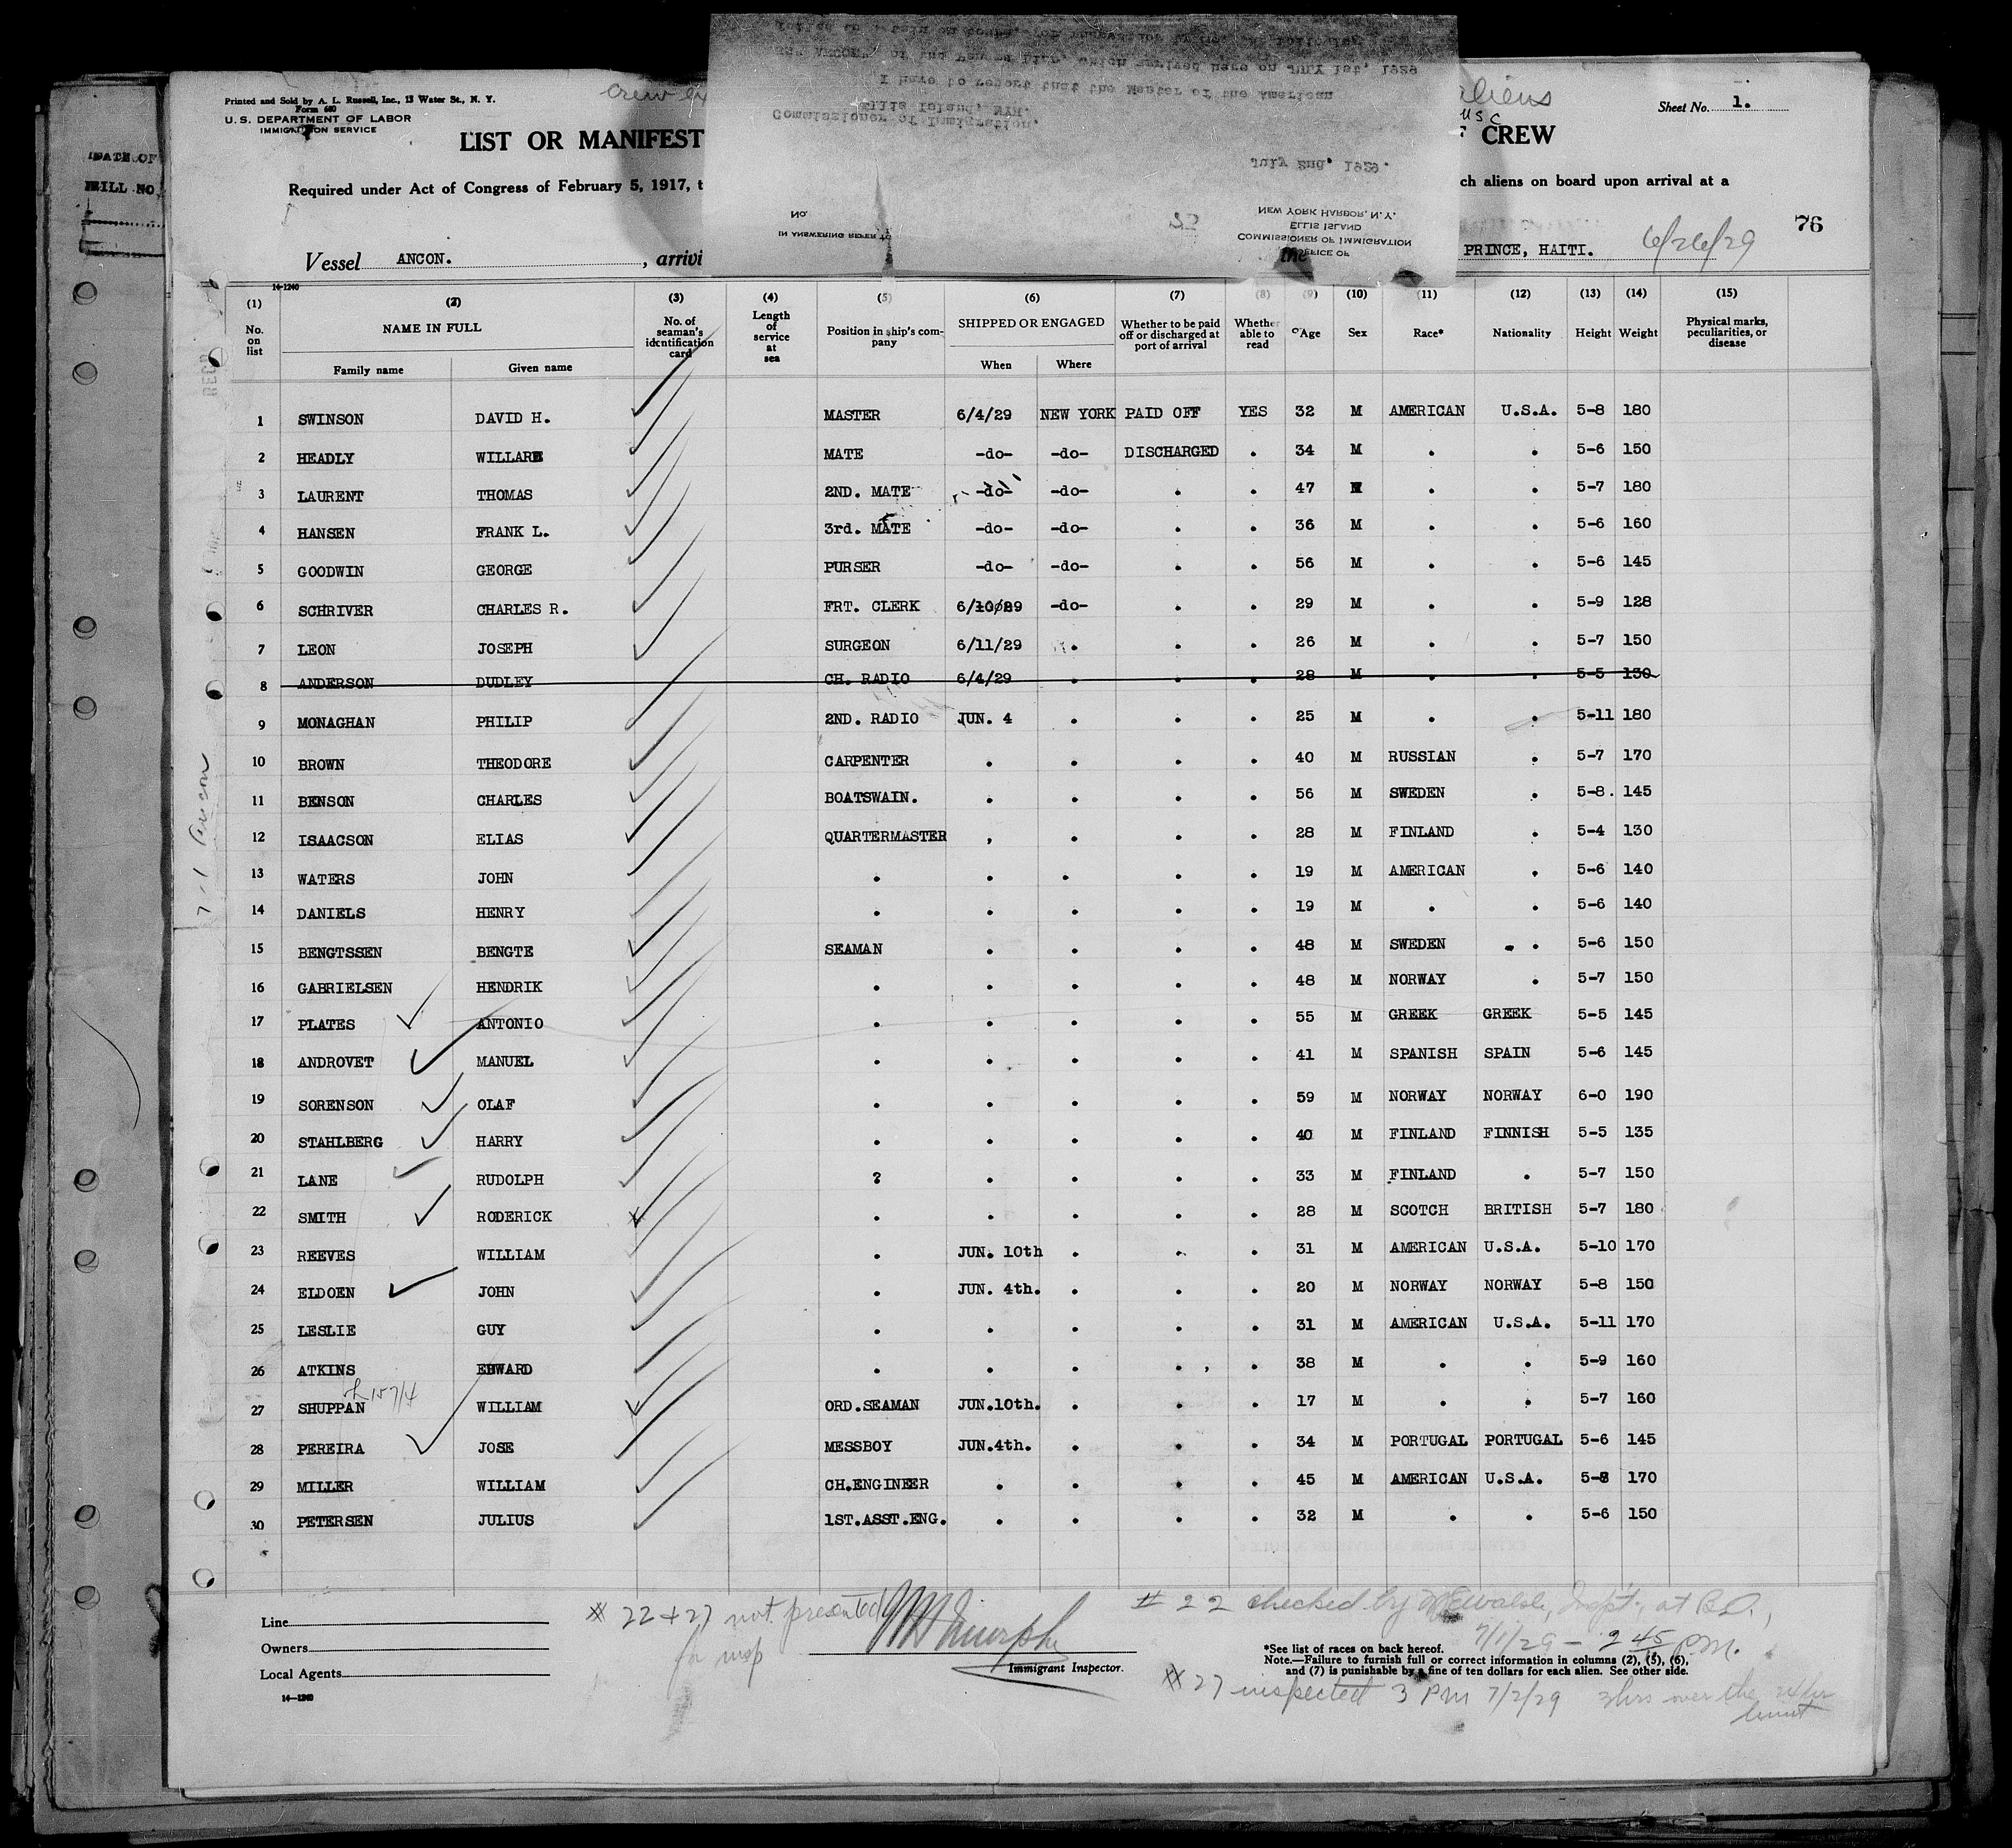 Printed and Sold by A. L. Russell, Inc., 13 Water St., N. Y.
Form 680
U. S. DEPARTMENT OF LABOR
IMMIGRATION SERVICE
crew
aliens
Sheet No. 1.
LIST OR MANIFEST
CREW
Required under Act of Congress of February 5, 1917, t
ch aliens on board upon arrival at a
OFFICE OF
COMMISSIONER OF IMMIGRATION
ELLIS ISLAND
NEW YORK HARBOR, N.Y.
IN ANSWERING REFER TO
No.
July 2nd, 1929.
Commissioner of Immigration,
Ellis Island, NYH.
I have to report that the Master of the American
which arrived here on JULY 1st, 1929
76
Vessel ANCON. , arrivi
the
PRINCE, HAITI. 6/26/29
14-1240
(1) (2) (3) (4) (5) (6) (7) (8) (9) (10) (11) (12) (13) (14) (15)
No. on list NAME IN FULL No. of seaman's identification card Length of service at sea Position in ship's company SHIPPED OR ENGAGED Whether to be paid off or discharged at port of arrival Whether able to read Age Sex Race* Nationality Height Weight Physical marks, peculiarities, or disease
Family name Given name When Where
1 SWINSON DAVID H. MASTER 6/4/29 NEW YORK PAID OFF YES 32 M AMERICAN U.S.A. 5-8 180
2 HEADLY WILLARD MATE -do- -do- DISCHARGED . 34 M . . 5-6 150
3 LAURENT THOMAS 2ND. MATE -do- -do- . . 47 M . . 5-7 180
4 HANSEN FRANK L. 3rd. MATE -do- -do- . . 36 M . . 5-6 160
5 GOODWIN GEORGE PURSER -do- -do- . . 56 M . . 5-6 145
6 SCHRIVER CHARLES R. FRT. CLERK 6/10/29 -do- . . 29 M . . 5-9 128
7 LEON JOSEPH SURGEON 6/11/29 . . . 26 M . . 5-7 150
8 ANDERSON DUDLEY CH. RADIO 6/4/29 . . . 28 M . . 5-5 130
9 MONAGHAN PHILIP 2ND. RADIO JUN. 4 . . . 25 M . . 5-11 180
10 BROWN THEODORE CARPENTER . . . . 40 M RUSSIAN . 5-7 170
11 BENSON CHARLES BOATSWAIN. . . . . 56 M SWEDEN . 5-8. 145
12 ISAACSON ELIAS QUARTERMASTER , . . . 28 M FINLAND . 5-4 130
13 WATERS JOHN . . . . . 19 M AMERICAN . 5-6 140
14 DANIELS HENRY . . . . . 19 M . . 5-6 140
15 BENGTSSEN BENGTE SEAMAN . . . . 48 M SWEDEN . . 5-6 150
16 GABRIELSEN HENDRIK . . . . . 48 M NORWAY . 5-7 150
17 PLATES ANTONIO . . . . . 55 M GREEK GREEK 5-5 145
18 ANDROVET MANUEL . . . . . 41 M SPANISH SPAIN 5-6 145
19 SORENSON OLAF . . . . . 59 M NORWAY NORWAY 6-0 190
20 STAHLBERG HARRY . . . . . 40 M FINLAND FINNISH 5-5 135
21 LANE RUDOLPH ? . . . . 33 M FINLAND . 5-7 150
22 SMITH RODERICK . . . . . 28 M SCOTCH BRITISH 5-7 180
23 REEVES WILLIAM . JUN. 10th . . . 31 M AMERICAN U.S.A. 5-10 170
24 ELDOEN JOHN . JUN. 4th. . . . 20 M NORWAY NORWAY 5-8 150
25 LESLIE GUY . . . . . 31 M AMERICAN U.S.A. 5-11 170
26 ATKINS EDWARD . . . . , . 38 M . . 5-9 160
27 SHUPPAN WILLIAM ORD.SEAMAN JUN.10th. . . . 17 M . . 5-7 160
28 PEREIRA JOSE MESSBOY JUN.4th. . . . 34 M PORTUGAL PORTUGAL 5-6 145
29 MILLER WILLIAM CH.ENGINEER . . . . 45 M AMERICAN U.S.A. 5-8 170
30 PETERSEN JULIUS 1ST.ASST.ENG. . . . . 32 M . . 5-6 150
Line
Owners
Local Agents
14-1240
# 22 + 27 not presented
for insp
Immigrant Inspector.
# 22 checked by Walsh, Insp't. at B.O.,
7/1/29 - 2 45 P.M.
*See list of races on back hereof.
Note.—Failure to furnish full or correct information in columns (2), (5), (6),
and (7) is punishable by a fine of ten dollars for each alien. See other side.
# 27 inspected 3 PM 7/2/29 3hrs over the 24 hr
limit